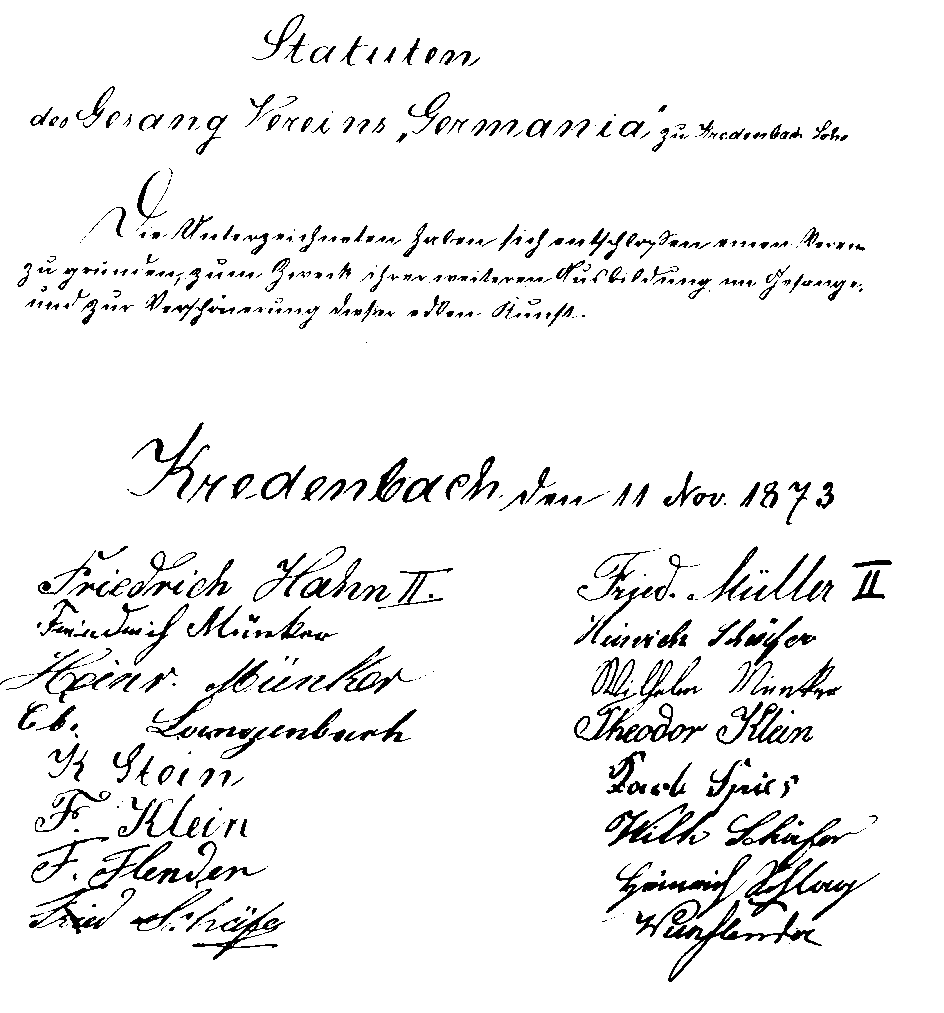 Statuten
des Gesang Vereins „Germania“ zu Kredenbach Lohe
Die Unterzeichneten haben sich entschlossen einen Verein
zu gründen, zum Zweck ihrer weiteren Ausbildung im Gesange,
und zur Verschönerung dieser edlen Kunst.
Kredenbach den 11 Nov. 1873
Friedrich Hahn II.
Friedrich Münker
Heinr. Münker
Eb. Langenbach
K Stein
F. Klein
F. Flender
Fried Schäfer
Fried. Müller II
Heinrich Schäfer
Wilhelm Münker
Theodor Klein
Karl Spies
Wilh Schäfer
Heinrich Schlag